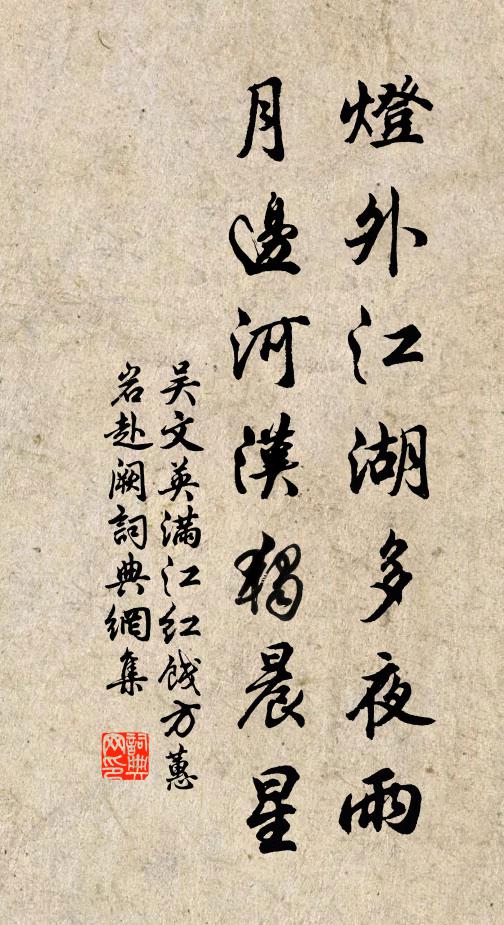 燈外江湖多夜雨
月邊河漢獨晨星
吴文英滿江紅餞方蕙
岩赴阙詞典網集
詞典
网印